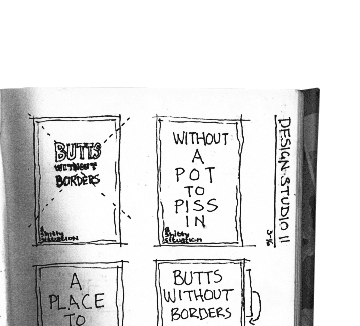 BUTTS
WITHOUT
BORDERS
A
Shitty
SITUATION
WITHOUT
A
POT
TO
PISS
IN
A
Shitty
SITUATION
DESIGN STUDIO II
A
PLACE
TO
BUTTS
WITHOUT
BORDERS